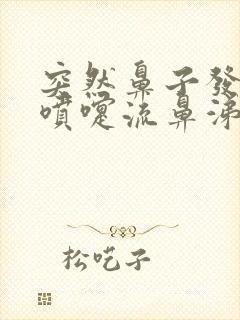 突然鼻子發
噴嚏流鼻涕
松吃子